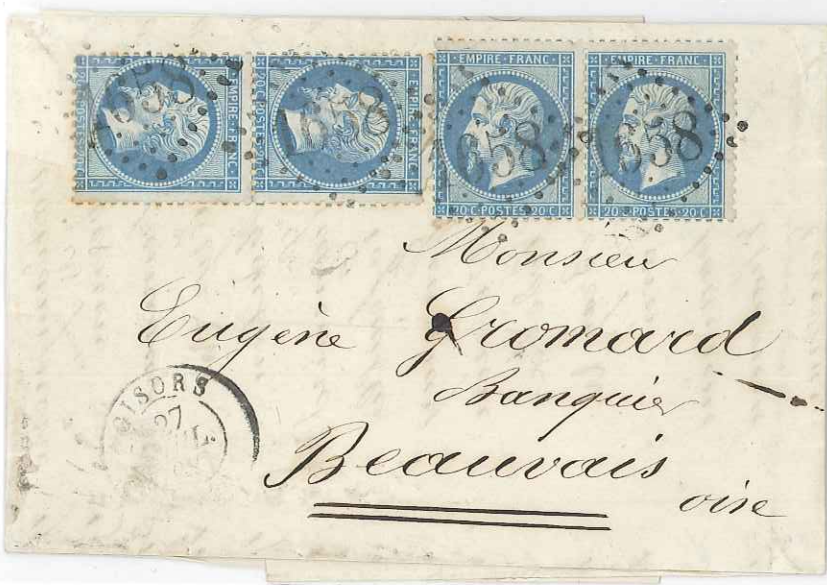 EMPIRE·FRANC·
20 C·POSTES·20 C
1658
EMPIRE·FRANC·
20 C·POSTES·20 C
1658
EMPIRE·FRANC·
20 C·POSTES·20 C
1658
EMPIRE·FRANC·
20 C·POSTES·20 C
1658
Monsieur
Eugène Gromard
Banquier
Beauvais
oise
GISORS
27